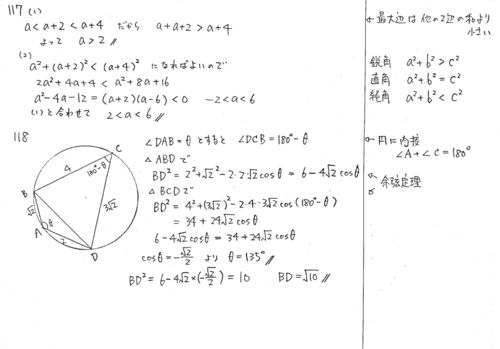 117 (1)
a < a+2 < a+4 だから a+a+2 > a+4
よって a > 2 //
(2)
a²+(a+2)² < (a+4)² になればよいので
2a²+4a+4 < a²+8a+16
a²-4a-12 = (a+2)(a-6) < 0 -2<a<6
(1)と合わせて 2<a<6 //
←最大辺は他の2辺の和より
小さい
鋭角 a²+b² > c²
直角 a²+b² = c²
鈍角 a²+b² < c²
118
∠DAB=θ とすると ∠DCB=180°-θ
△ABDで
BD² = 2²+√2²-2・2√2cosθ = 6-4√2cosθ
△BCDで
BD² = 4²+(3√2)²-2・4・3√2cos(180°-θ)
= 34+24√2cosθ
6-4√2cosθ = 34+24√2cosθ
cosθ=-√2/2 より θ=135° //
BD² = 6-4√2×(-√2/2) = 10 BD=√10 //
C
180°-θ
4
B
3√2
√2
θ
A
2
D
←円に内接
∠A+∠C=180°
←余弦定理